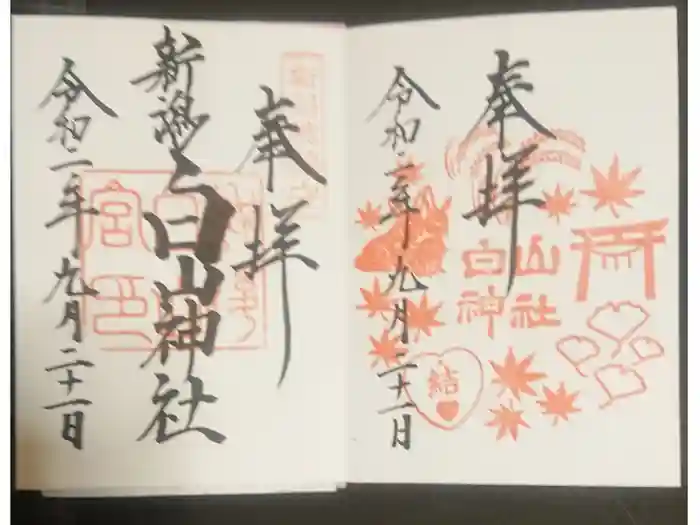 奉拝
新潟
白山神社
令和二年九月二十一日
奉拝
白山
神社
結
令和二年九月二十一日